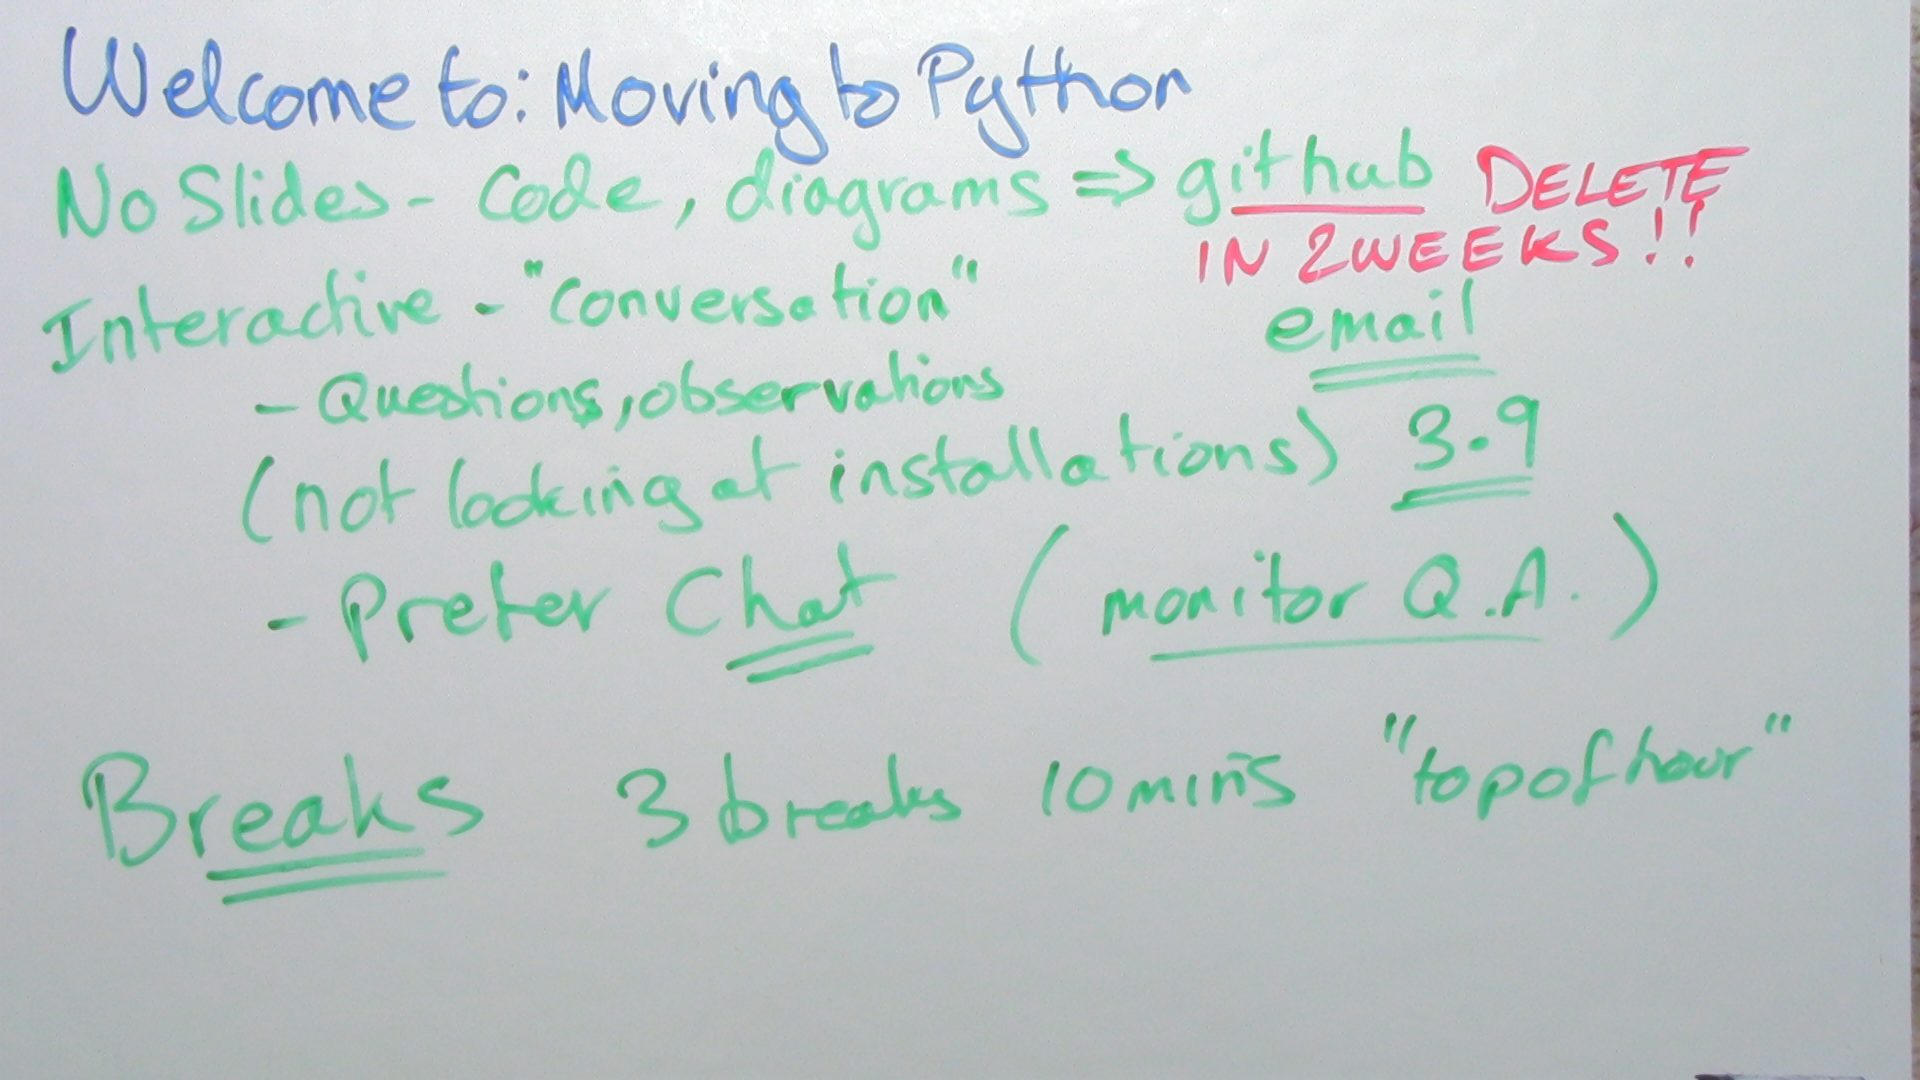 Welcome to: Moving to Python
No Slides - Code, diagrams => github DELETE
IN 2 WEEKS!!
Interactive - "conversation"
email
- Questions, observations
(not looking at installations) 3.9
- Prefer Chat (monitor Q.A.)
Breaks 3 breaks 10 mins "top of hour"